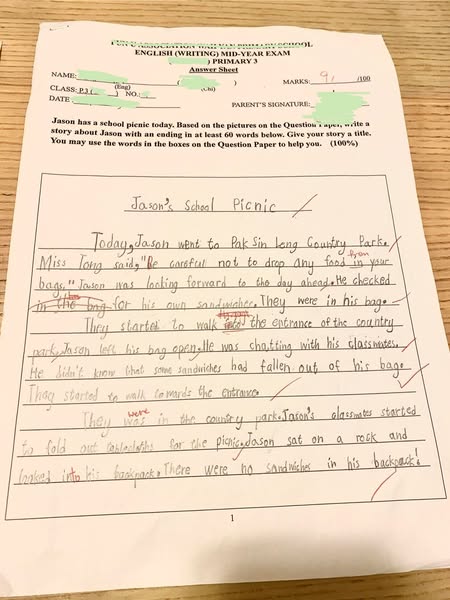 PRIMARY SCHOOL
ENGLISH (WRITING) MID-YEAR EXAM
) PRIMARY 3
Answer Sheet
NAME: ( )
(Eng) (Chi)
MARKS: 91 /100
CLASS: P.3 ( ) NO.:
DATE:
PARENT'S SIGNATURE:
Jason has a school picnic today. Based on the pictures on the Question Paper, write a
story about Jason with an ending in at least 60 words below. Give your story a title.
You may use the words in the boxes on the Question Paper to help you. (100%)
Jason's School Picnic
Today, Jason went to Pak Sin Leng Country Park.
from
Miss Tong said, "Be careful not to drop any food in your
bags." Jason was looking forward to the day ahead. He checked
in the bag for his own sandwiches. They were in his bag.
They started to walk the entrance of the country
park. Jason left his bag open. He was chatting with his classmates.
He didn't know that some sandwiches had fallen out of his bag.
They started to walk towards the entrance.
were
They was in the country park. Jason's classmates started
to fold out tablecloths for the picnic. Jason sat on a rock and
looked into his backpack. There were no sandwiches in his backpack!
1